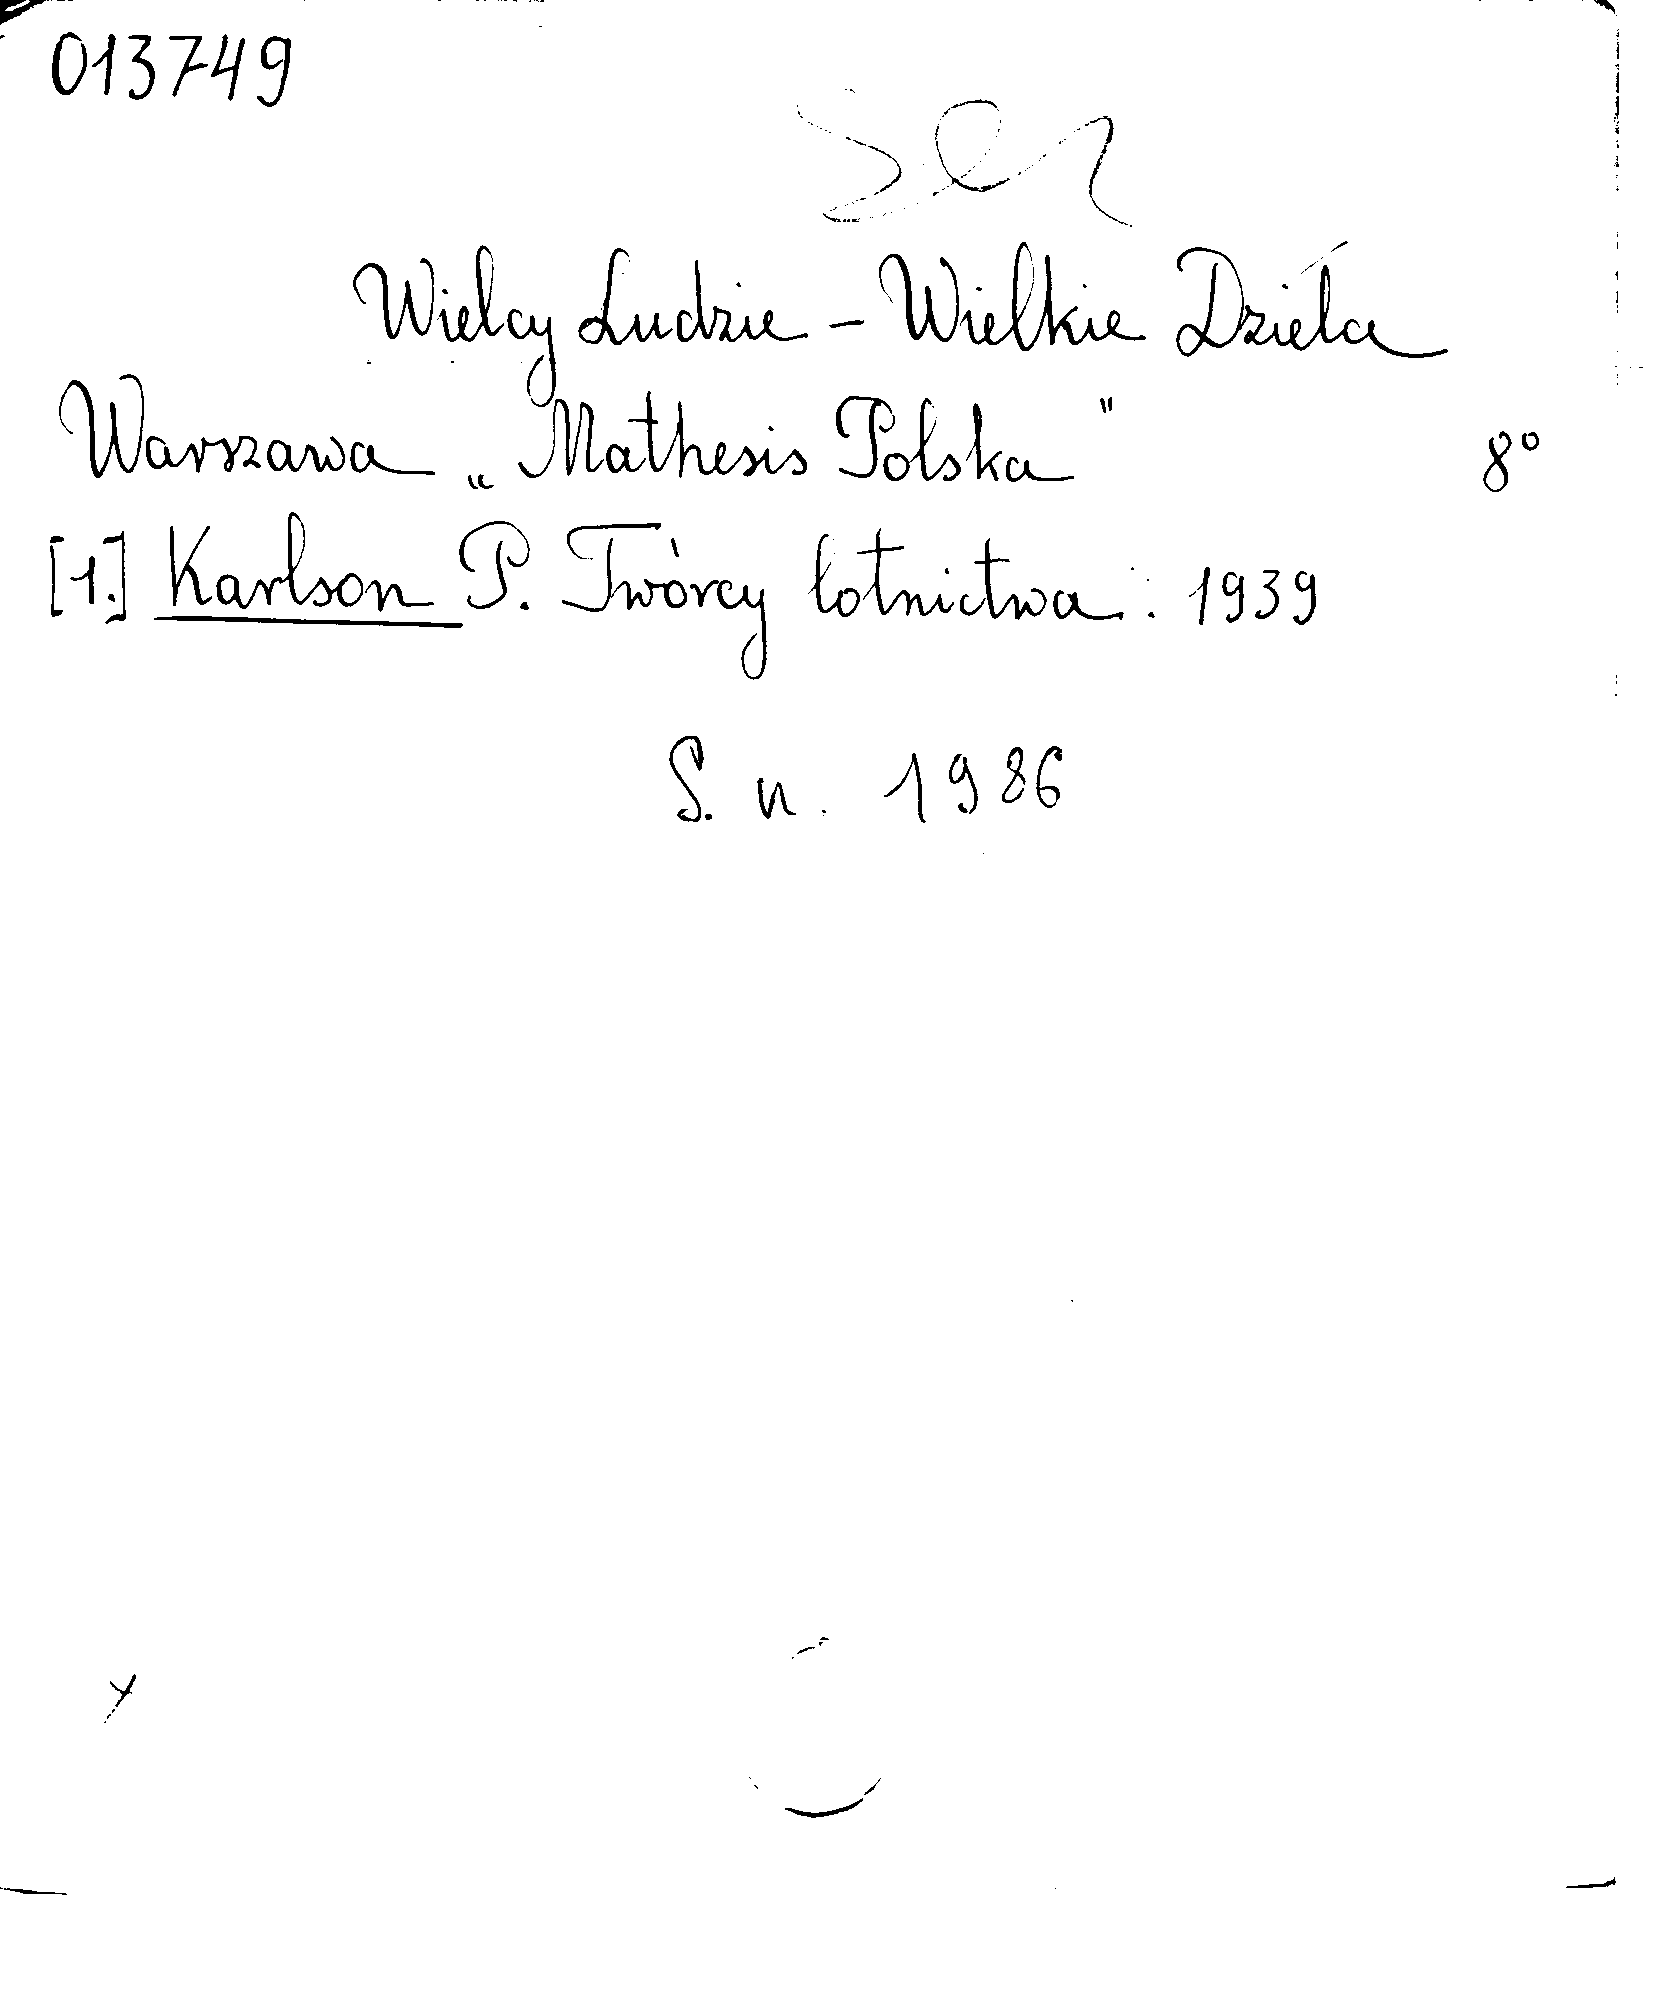 013749
Ser
Wielcy Ludzie – Wielkie Dzieła
Warszawa „Mathesis Polska" 8°
[1.] Karlson P. Twórcy lotnictwa: 1939
S. n. 1986